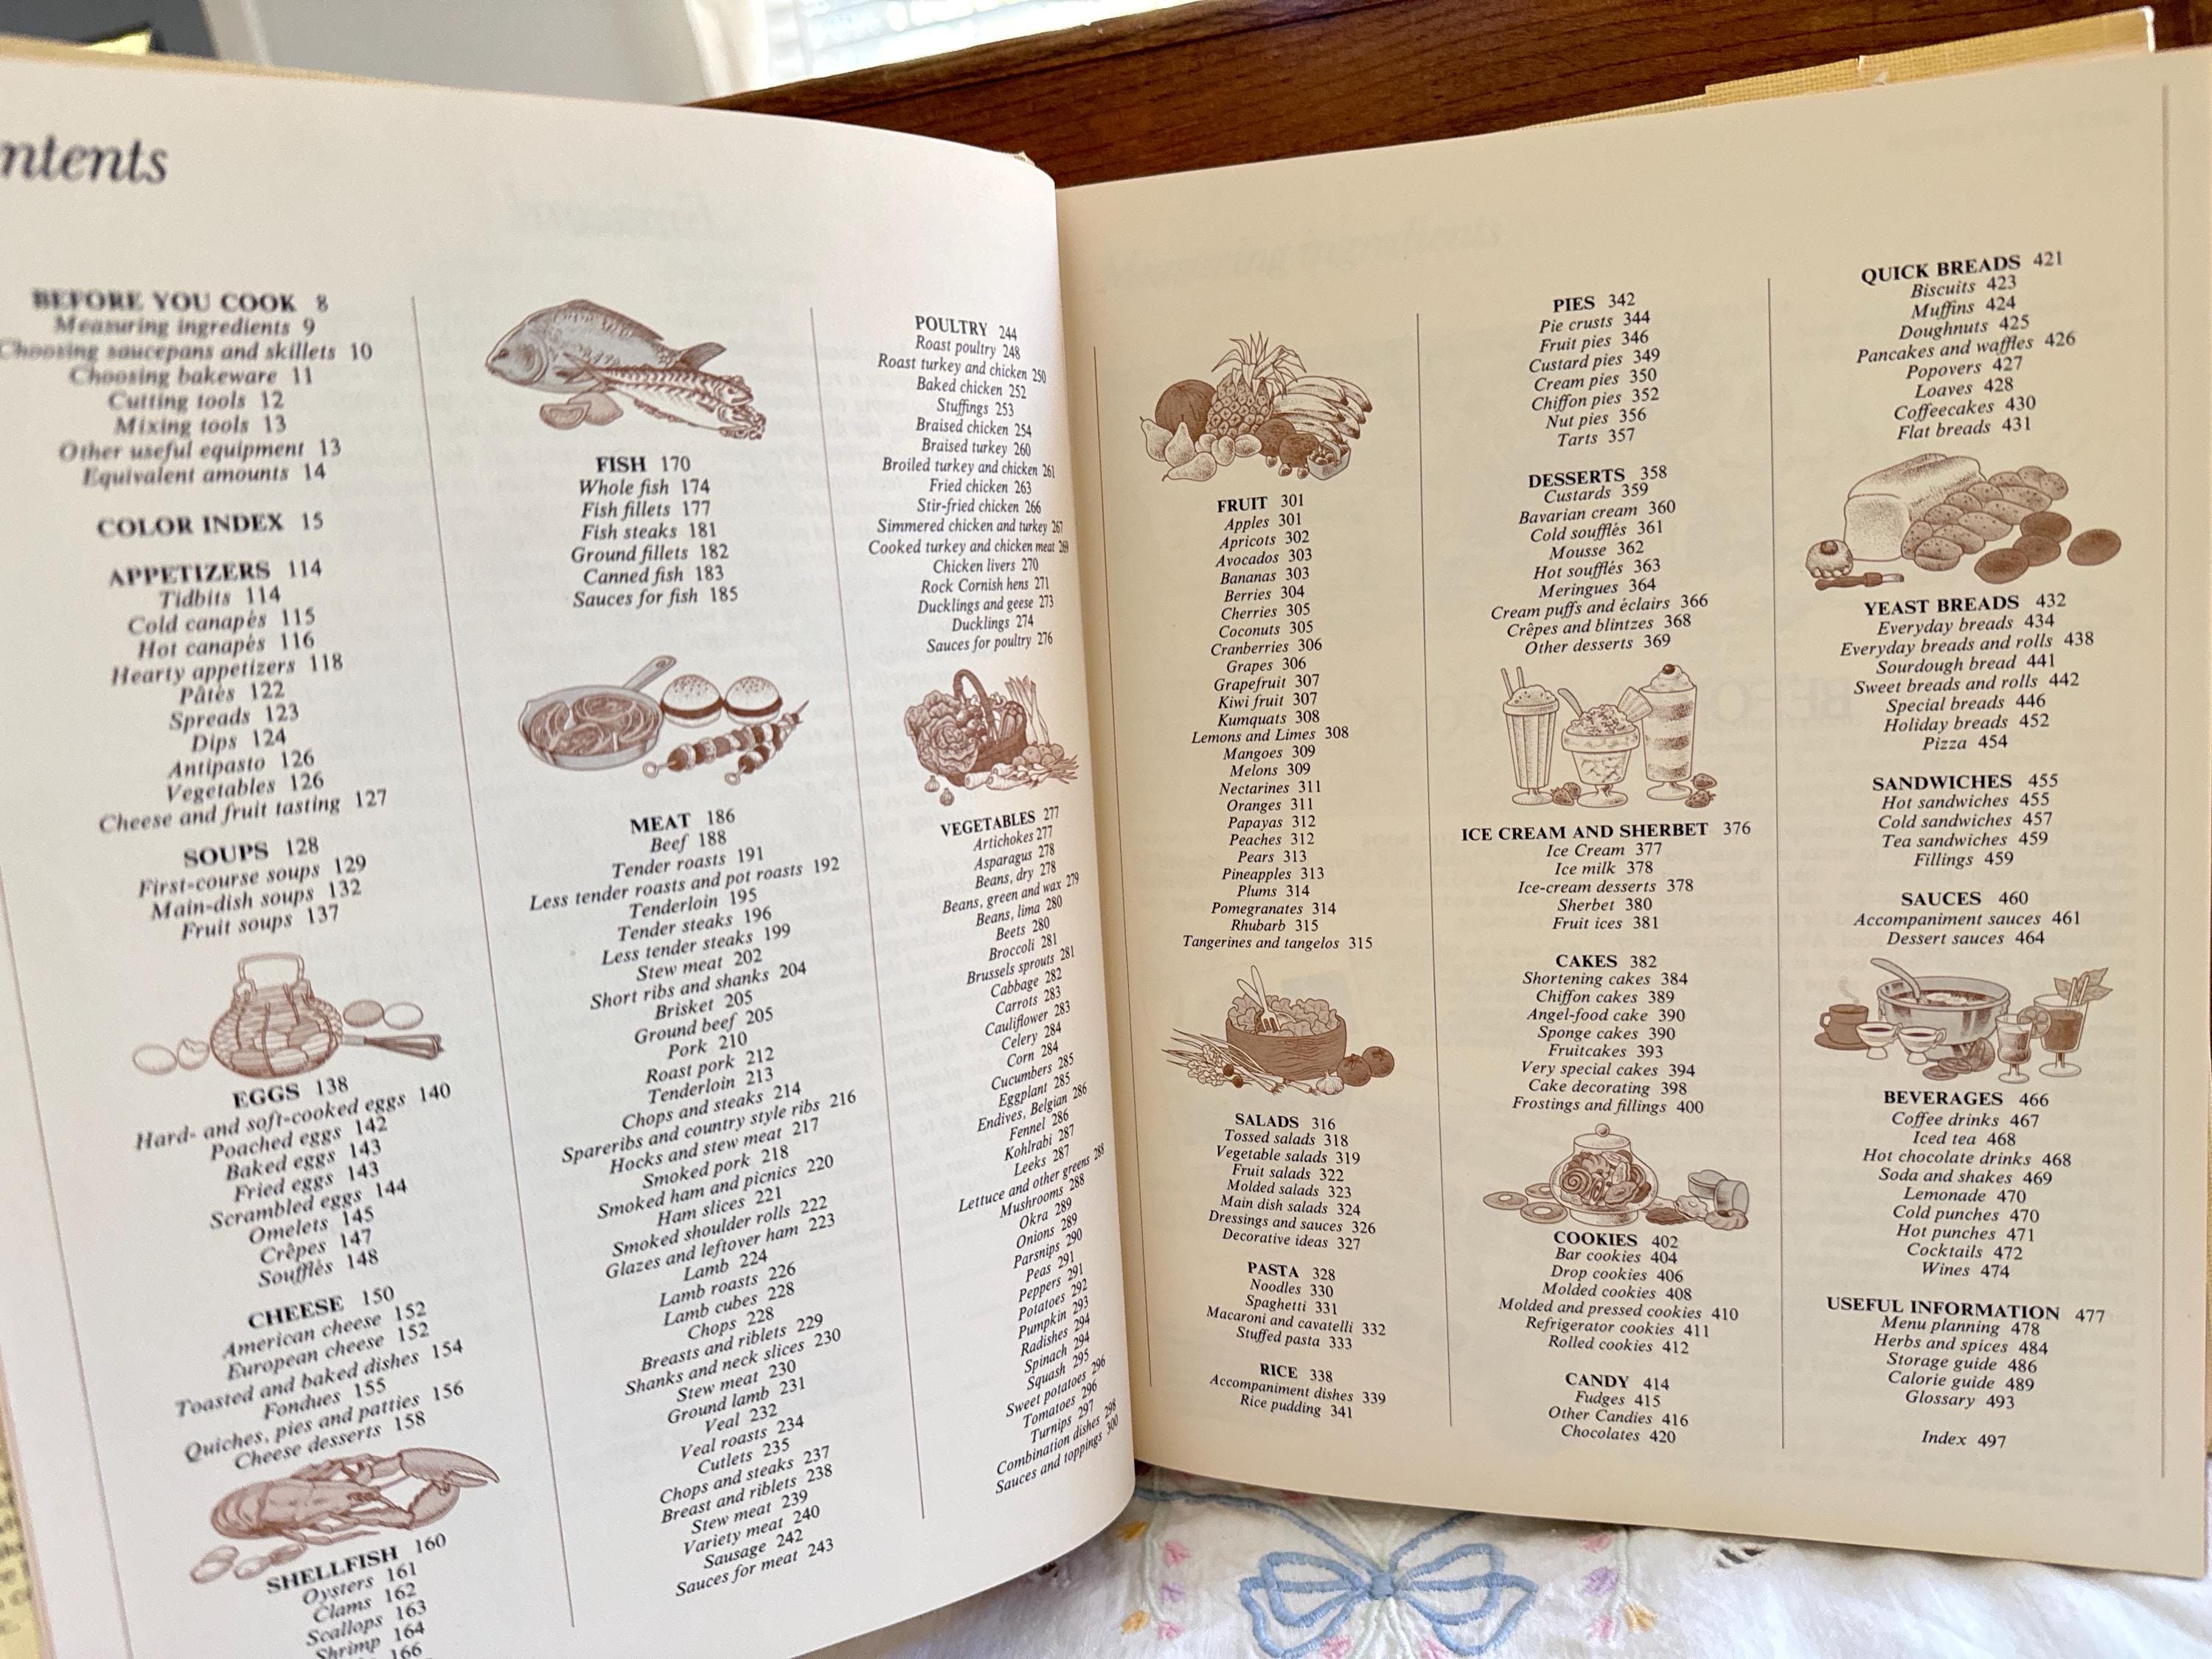 ntents
BEFORE YOU COOK 8
Measuring ingredients 9
Choosing saucepans and skillets 10
Choosing bakeware 11
Cutting tools 12
Mixing tools 13
Other useful equipment 13
Equivalent amounts 14
COLOR INDEX 15
APPETIZERS 114
Tidbits 114
Cold canapés 115
Hot canapés 116
Hearty appetizers 118
Pâtés 122
Spreads 123
Dips 124
Antipasto 126
Vegetables 126
Cheese and fruit tasting 127
SOUPS 128
First-course soups 129
Main-dish soups 132
Fruit soups 137
EGGS 138
Hard- and soft-cooked eggs 140
Poached eggs 142
Baked eggs 143
Fried eggs 143
Scrambled eggs 144
Omelets 145
Crêpes 147
Soufflés 148
CHEESE 150
American cheese 152
European cheese 152
Toasted and baked dishes 154
Fondues 155
Quiches, pies and patties 156
Cheese desserts 158
SHELLFISH 160
Oysters 161
Clams 162
Scallops 163
Shrimp 164
166
FISH 170
Whole fish 174
Fish fillets 177
Fish steaks 181
Ground fillets 182
Canned fish 183
Sauces for fish 185
MEAT 186
Beef 188
Tender roasts 191
Less tender roasts and pot roasts 192
Tenderloin 195
Tender steaks 196
Less tender steaks 199
Stew meat 202
Short ribs and shanks 204
Brisket 205
Ground beef 205
Pork 210
Roast pork 212
Tenderloin 213
Chops and steaks 214
Spareribs and country style ribs 216
Hocks and stew meat 217
Smoked pork 218
Smoked ham and picnics 220
Ham slices 221
Smoked shoulder rolls 222
Glazes and leftover ham 223
Lamb 224
Lamb roasts 226
Lamb cubes 228
Chops 228
Breasts and riblets 229
Shanks and neck slices 230
Stew meat 230
Ground lamb 231
Veal 232
Veal roasts 234
Cutlets 235
Chops and steaks 237
Breast and riblets 238
Stew meat 239
Variety meat 240
Sausage 242
Sauces for meat 243
POULTRY 244
Roast poultry 248
Roast turkey and chicken 250
Baked chicken 252
Stuffings 253
Braised chicken 254
Braised turkey 260
Broiled turkey and chicken 261
Fried chicken 263
Stir-fried chicken 266
Simmered chicken and turkey 267
Cooked turkey and chicken meat 269
Chicken livers 270
Rock Cornish hens 271
Ducklings and geese 273
Ducklings 274
Sauces for poultry 276
VEGETABLES 277
Artichokes 277
Asparagus 278
Beans, dry 278
Beans, green and wax 279
Beans, lima 280
Beets 280
Broccoli 281
Brussels sprouts 281
Cabbage 282
Carrots 283
Cauliflower 283
Celery 284
Corn 284
Cucumbers 285
Eggplant 285
Endives, Belgian 286
Fennel 286
Kohlrabi 287
Leeks 287
Lettuce and other greens 288
Mushrooms 288
Okra 289
Onions 289
Parsnips 290
Peas 291
Peppers 291
Potatoes 292
Pumpkin 293
Radishes 294
Spinach 294
Squash 295
Sweet potatoes 296
Tomatoes 296
Turnips 297
Combination dishes 298
Sauces and toppings 300
FRUIT 301
Apples 301
Apricots 302
Avocados 303
Bananas 303
Berries 304
Cherries 305
Coconuts 305
Cranberries 306
Grapes 306
Grapefruit 307
Kiwi fruit 307
Kumquats 308
Lemons and Limes 308
Mangoes 309
Melons 309
Nectarines 311
Oranges 311
Papayas 312
Peaches 312
Pears 313
Pineapples 313
Plums 314
Pomegranates 314
Rhubarb 315
Tangerines and tangelos 315
SALADS 316
Tossed salads 318
Vegetable salads 319
Fruit salads 322
Molded salads 323
Main dish salads 324
Dressings and sauces 326
Decorative ideas 327
PASTA 328
Noodles 330
Spaghetti 331
Macaroni and cavatelli 332
Stuffed pasta 333
RICE 338
Accompaniment dishes 339
Rice pudding 341
PIES 342
Pie crusts 344
Fruit pies 346
Custard pies 349
Cream pies 350
Chiffon pies 352
Nut pies 356
Tarts 357
DESSERTS 358
Custards 359
Bavarian cream 360
Cold soufflés 361
Mousse 362
Hot soufflés 363
Meringues 364
Cream puffs and éclairs 366
Crêpes and blintzes 368
Other desserts 369
ICE CREAM AND SHERBET 376
Ice Cream 377
Ice milk 378
Ice-cream desserts 378
Sherbet 380
Fruit ices 381
CAKES 382
Shortening cakes 384
Chiffon cakes 389
Angel-food cake 390
Sponge cakes 390
Fruitcakes 393
Very special cakes 394
Cake decorating 398
Frostings and fillings 400
COOKIES 402
Bar cookies 404
Drop cookies 406
Molded cookies 408
Molded and pressed cookies 410
Refrigerator cookies 411
Rolled cookies 412
CANDY 414
Fudges 415
Other Candies 416
Chocolates 420
QUICK BREADS 421
Biscuits 423
Muffins 424
Doughnuts 425
Pancakes and waffles 426
Popovers 427
Loaves 428
Coffeecakes 430
Flat breads 431
YEAST BREADS 432
Everyday breads 434
Everyday breads and rolls 438
Sourdough bread 441
Sweet breads and rolls 442
Special breads 446
Holiday breads 452
Pizza 454
SANDWICHES 455
Hot sandwiches 455
Cold sandwiches 457
Tea sandwiches 459
Fillings 459
SAUCES 460
Accompaniment sauces 461
Dessert sauces 464
BEVERAGES 466
Coffee drinks 467
Iced tea 468
Hot chocolate drinks 468
Soda and shakes 469
Lemonade 470
Cold punches 470
Hot punches 471
Cocktails 472
Wines 474
USEFUL INFORMATION 477
Menu planning 478
Herbs and spices 484
Storage guide 486
Calorie guide 489
Glossary 493
Index 497